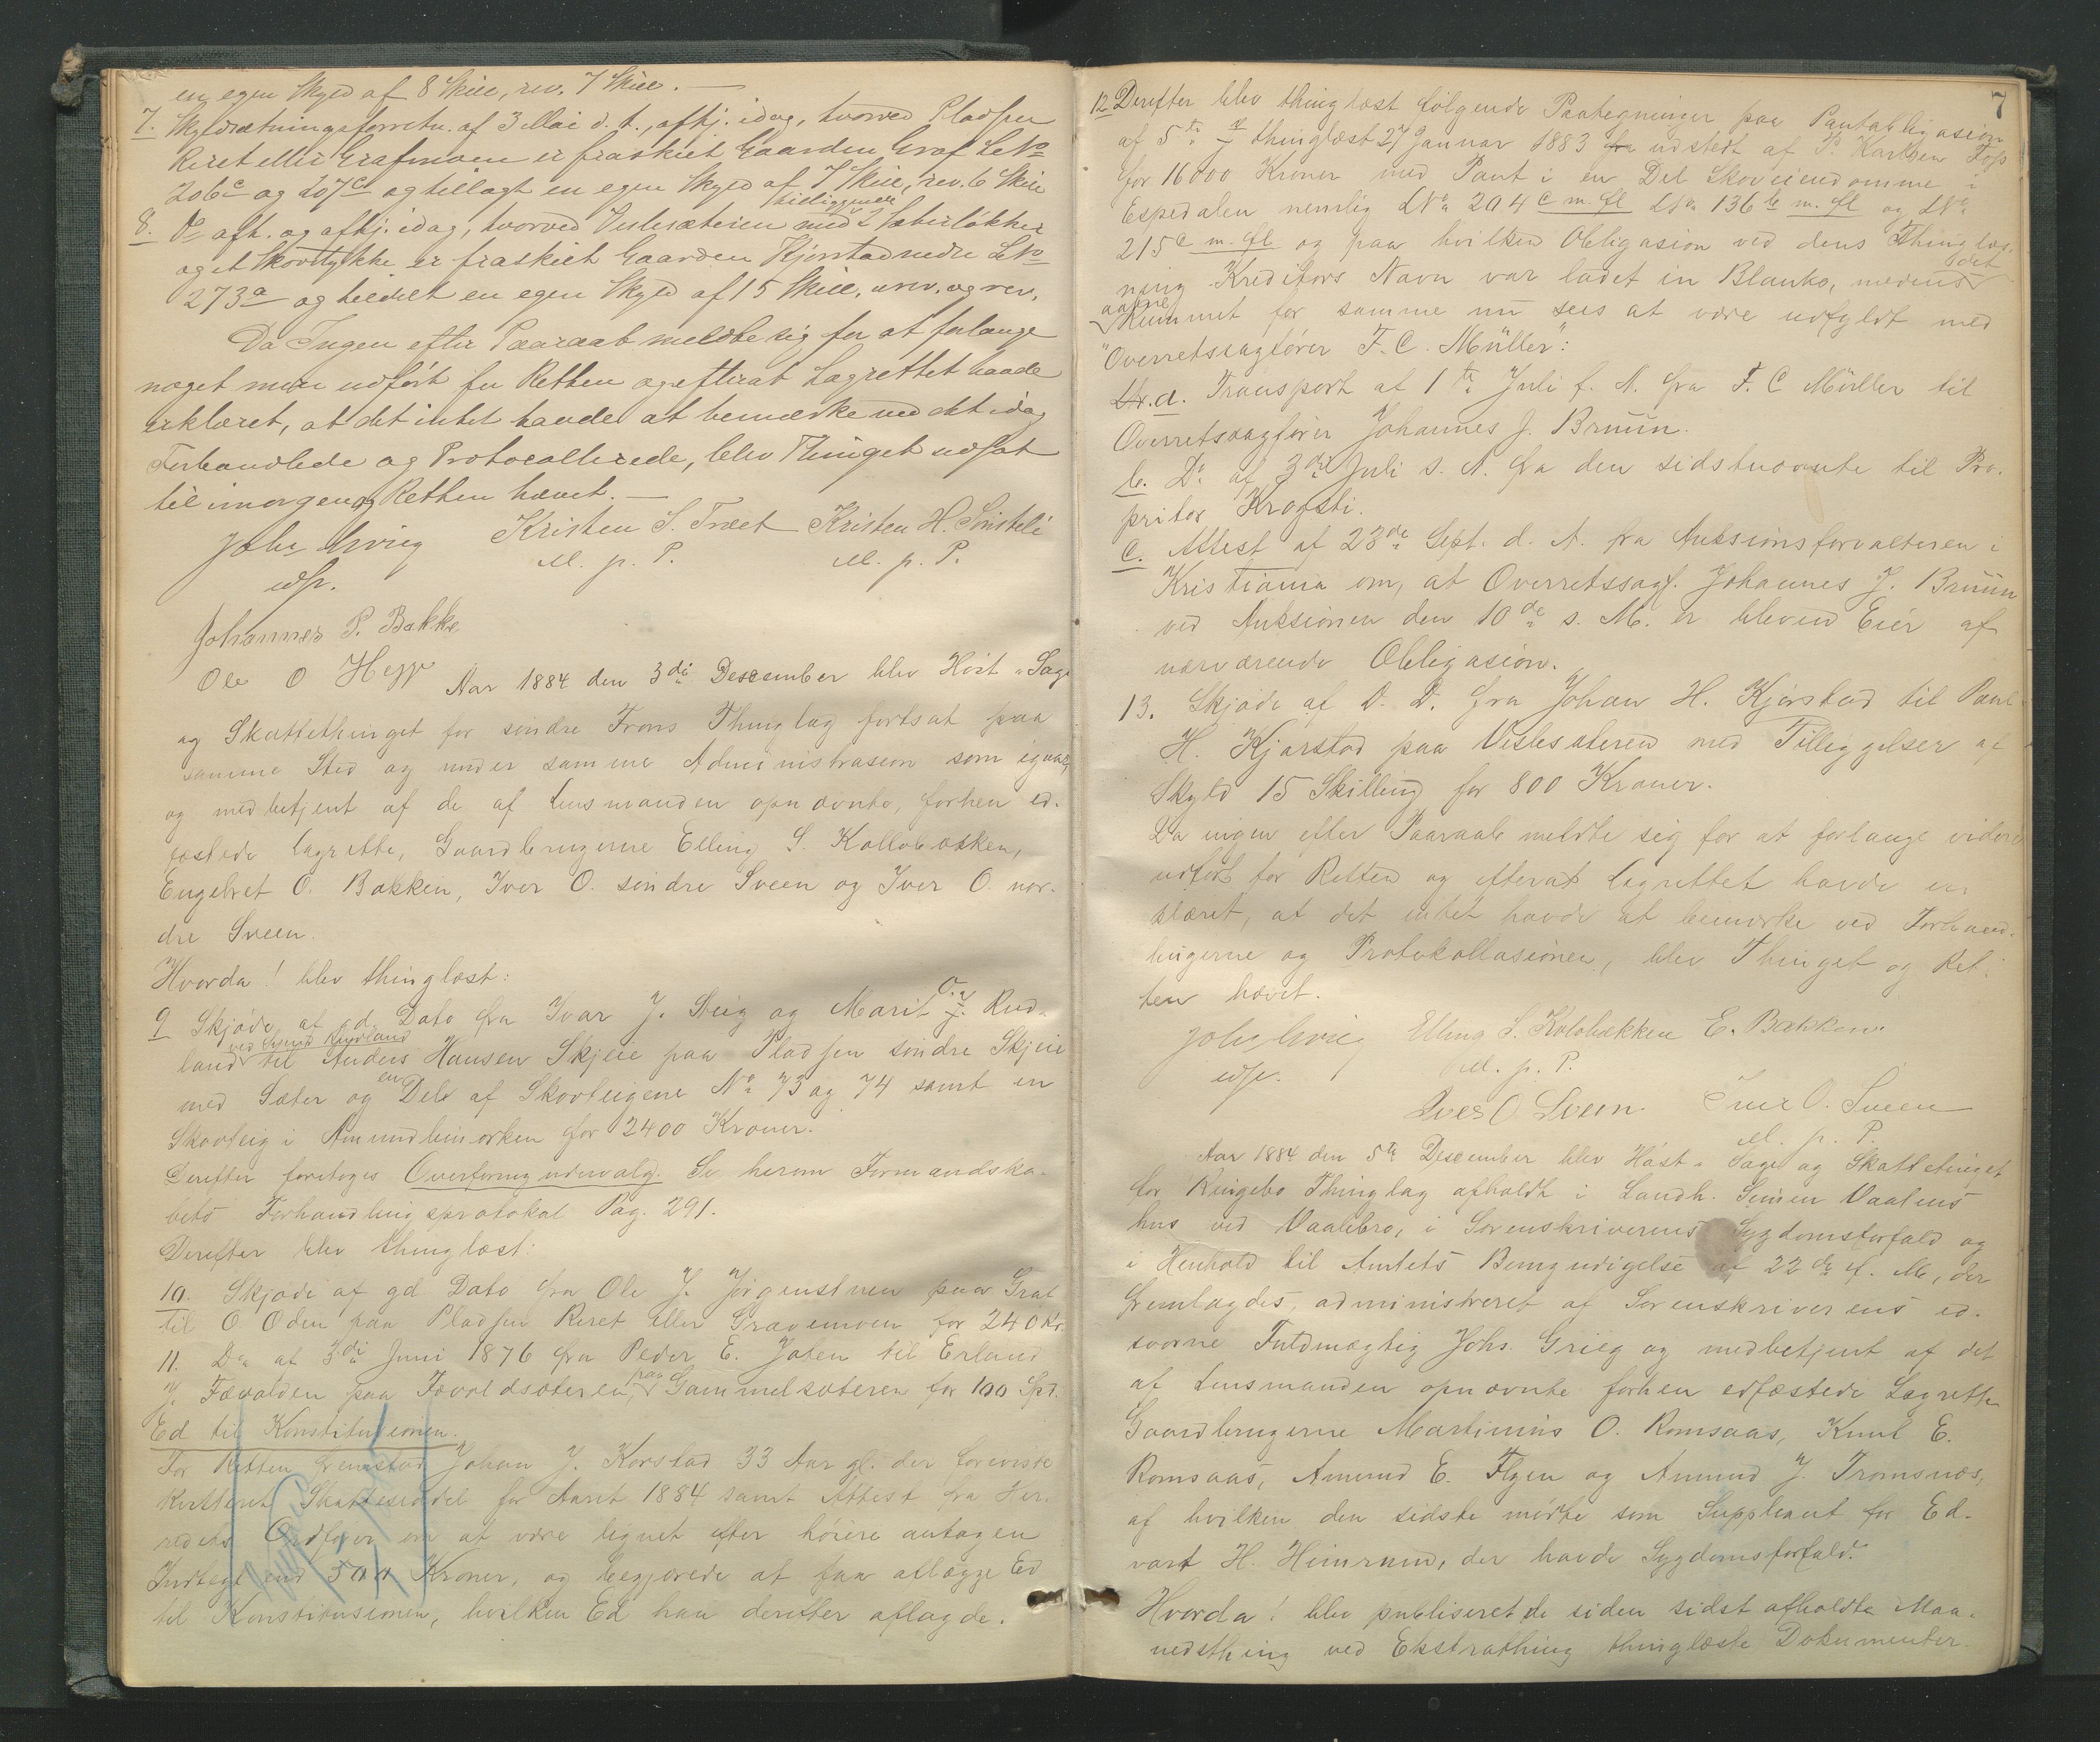 en egen Skyld af 8 Skill, rev. 7 Skill. —
7. Skyldsætningsforretn. af 3 Mai d. A., afhj. idag, hvorved Pladsen
Reret eller Grafmoen er fraskilt Gaarden Graf LNo
206c og 207c og tillagt en egen Skyld af 7 Skill, rev. 6 Skill
8. Do afh. og afhj. idag, hvorved Veslesæteren med tilliggende 2 Sæterløkker
og et Skovstykke er fraskilt Gaarden Kjørstad nedre LNo
273a og tildelt en egen Skyld af 15 Skill. urev. og rev.
Da Ingen efter Paaraab meldte sig for at forlange
noget mere udført for Retten og efterat Lagrettet havde
erklæret, at det intet havde at bemærke ved det idag
Forhandlede og Protocollerede, blev Thinget udsat
til imorgen og Retten hævet. —
Johs Grieg Kristen S. Træet Kristen H. Sinsteli
edsv. M. p. P. M. p. P.
Johannes P. Bakke
Ole O Hege
Aar 1884 den 3die Descember blev Høst- Sage
og Skattethinget for søndre Frons Thinglag fortsat paa
samme Sted og under samme Administrasion som igaar,
og medbetjent af de af Lensmanden opnævnte, forhen ed-
fæstede lagrette, Gaardbrugerne Elling S. Kollobækken,
Engebret O. Bakken, Iver O. søndre Sveen og Iver O. nor-
dre Sveen.
Hvorda! blev thinglæst:
9 Skjøde af gd. Dato fra Ivar J. Steig og Marit O. J. Rud-
land ved Svend Rudland til Anders Hansen Skjeie paa Pladsen søndre Skjeie
med Sæter og en Del af Skovteigene No 73 og 74 samt en
Skovteig i Amundlimorken for 2400 Kroner.
Derefter foretoges Overformyndervalg. Se herom Formandska-
bets Forhandlingsprotokol Pag. 291.
Derefter blev thinglæst:
10. Skjøde af gd Dato fra Ole J. Jørgenstuen paa Graf
til O. Oden paa Pladsen Reret eller Gravemoen for 240 Kr.
11. Do af 3die Juni 1876 fra Peder E. Joten til Erland
J. Fævolden paa Fævoldsæteren, paa Gammelsæteren for 100 Spd.
Ed til Konstitusionen.
For Retten fremstod Johan J. Korstad 33 Aar gl. der foreviste
kvitteret Skatteseddel for Aaret 1884 samt Attest fra Her-
redets Ordfører om at være lignet efter høiere antagen
Indtægt end 500 Kroner, og begjærede at faa aflægge Ed
til Konstitusionen, hvilken Ed han derefter aflagde.
7
12 Derefter blev thinglæst følgende Paategninger paa Pantobligasion
af 5te thinglæst 27 Januar 1883 fra udstedt af P. Karlsen Foss
for 16000 Kroner med Pant i en Del Skoveiendomme i
Espedalen nemlig LNo 204c m. fl LNo 136b m. fl og LNo
215c m. fl og paa hvilken Obligasion ved dens Thinglæs-
ning Kreditors Navn var ladet in Blanko, medens det
aabne Rummet for samme nu sees at være udfyldt med
"Overretssagfører F. C. Müller":
Litr. a. Transport af 1te Juli f. A. fra F. C Müller til
Overretssagfører Johannes J. Bruun.
b. Do af 3die Juli s. A. fra den sidstnævnte til Pro-
pritær Krogsti.
c. Attest af 23de Sept. d. A. fra Auksionsforvalteren i
Kristiania om, at Overretssagf. Johannes J. Bruun
ved Auksionen den 10de s. M. er bleven Eier af
nærværende Obligasion.
13. Skjøde af D. D. fra Johan H. Kjørstad til Paul
H. Kjørstad paa Veslesæteren med Tilliggelser af
Skyld 15 Skilling for 800 Kroner.
Da ingen efter Paaraab meldte sig for at forlange videre
udført for Retten og efterat Lagrettet havde er-
klæret, at det intet havde at bemærke ved Forhand-
lingerne og Protokollasionen, blev Thinget og Ret-
ten hævet.
Johs Grieg Elling S. Kolobækken E. Bakken
edsv. M. p. P.
Iver O. Sveen. Iver O. Sveen
M. p. P.
Aar 1884 den 5te Descember blev Høst- Sage og Skattetinget
for Ringebo Thinglag afholdt i Landh. Simen Vaalens
hus ved Vaalebro, i Sorenskriverens Sygdomsforfald og
i Henhold til Amtets Bemyndigelse af 22de f. M., der
fremlagdes, administreret af Sorenskriverens ed-
svorne Fuldmægtig Johs. Grieg og medbetjent af det
af Lensmanden opnævnte forhen edfæstede Lagrette
Gaardbrugerne Martinius O. Romsaas, Knut E.
Romsaas, Amund E. Flyen og Amund J. Tromsnæs,
af hvilken den sidste mødte som Suppleant for Ed-
vart H. Heimrum, der havde Sygdomsforfald.
Hvorda! blev publiseret de siden sidst afholdte Maa-
nedsthing ved Ekstrathing thinglæste Dokumenter.